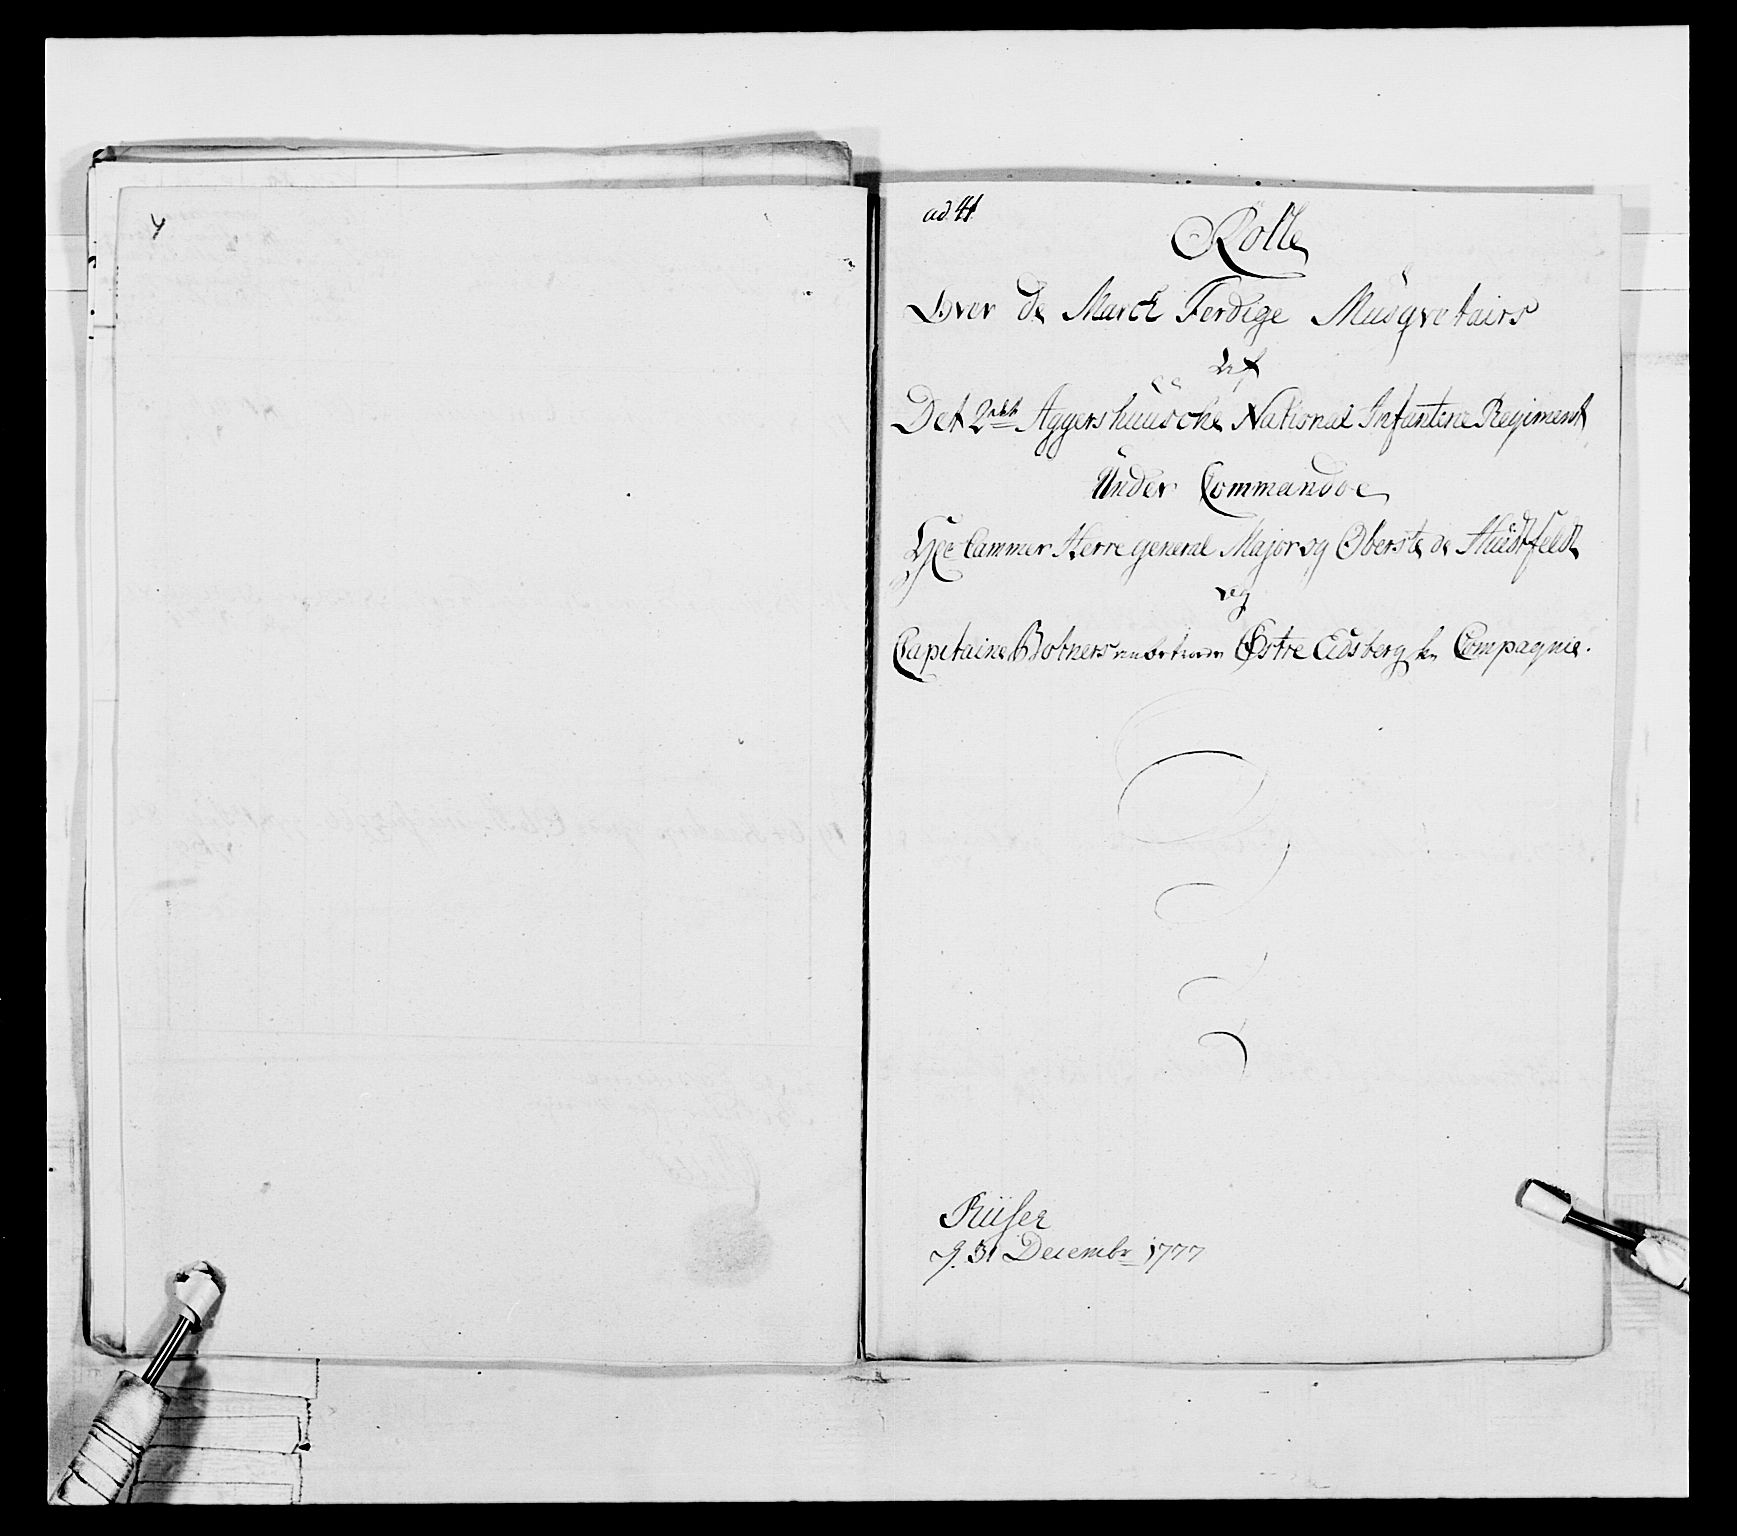 4
ad. 41
Rolle
Over de March Ferdige Musqvetairs
Af
Det 2det Aggershuusche National Infanterie Regiment
Under Commandoe
Hr Cammer Herre general Major og Oberste de Huidtfeldt
og
Capitaine Botners Østre Eidsbergske Compagnie.
Riiser
d. 31 Decembr 1777